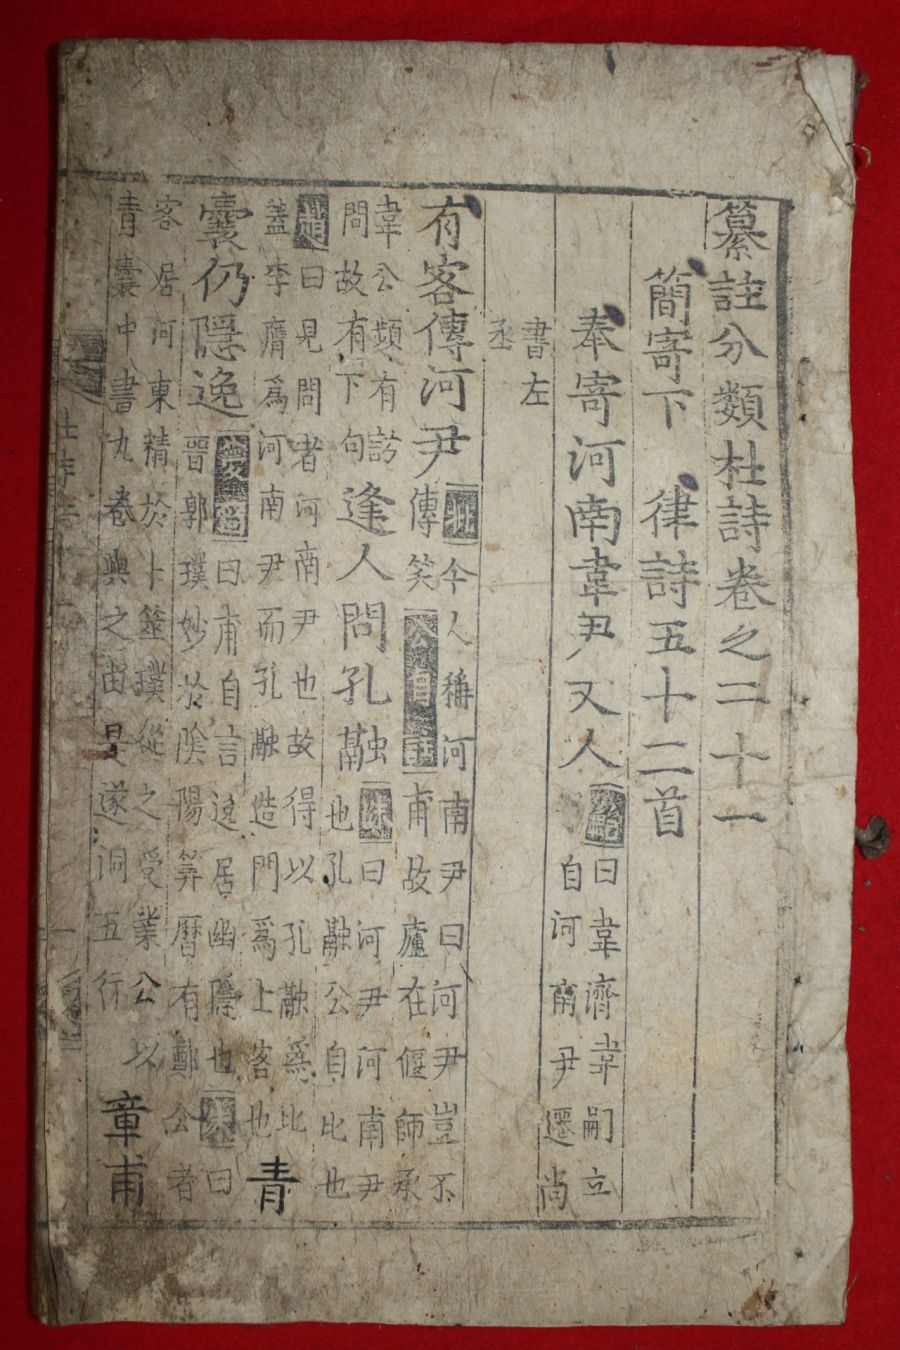 纂註分類杜詩卷之二十一
簡寄下　律詩五十二首
奉寄河南韋尹丈人
曰韋濟韋嗣立
自河南尹遷尚
書左
丞
有客傳河尹
今人稱河南尹曰河尹豈不
傳笑公自註甫故廬在偃師承
韋公頻有訪
問故有下句
逢人問孔融
洙曰河尹河南尹
也孔融公自比也
趙曰見問者河南尹也故得以孔融爲比
蓋李膺爲河南尹而孔融造門爲上客也
青
囊仍隱逸
夢弼曰甫自言居幽隱也洙曰
晉郭璞妙於陰陽筭曆有鄭公者
客居河東精於卜筮璞從之受業公以
青囊中書九卷與之由是遂洞五行
章甫